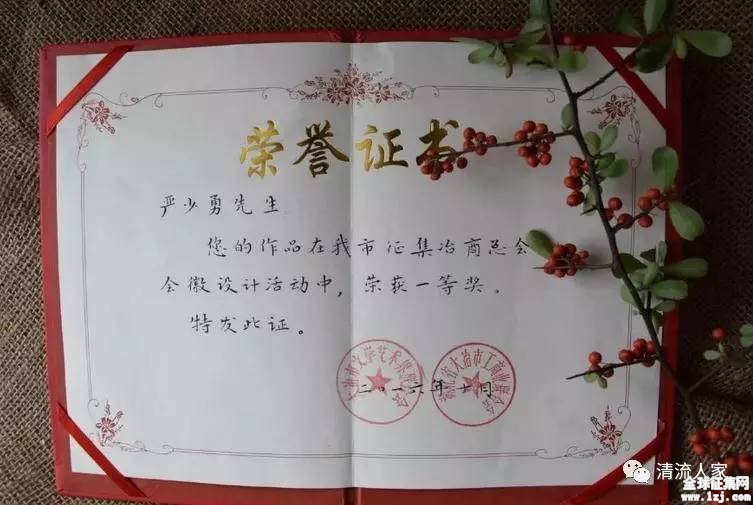 荣誉证书
严少勇先生
您的作品在我市征集冶商总会
会徽设计活动中，荣获一等奖。
特发此证。
大冶市文学艺术界联合会
湖北省大冶市工商业联合会
二〇一六年十月
清流人家
全球征集网
www.1zj.com